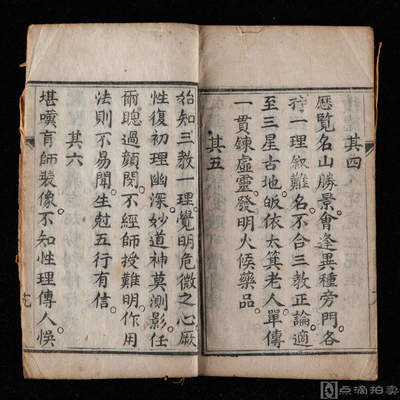 其四
歷覽名山勝景會逢異種旁門各
持一理叙難名不合三教正論適
至三星古地皈依太箕老人單傳
一貫錬虛靈發明火候藥品
其五
始知三教一理覺明危微之心厥
性復初理幽深妙道神莫測影任
爾聰過顔閔不經師授難明作用
法則不易聞生尅五行有信
其六
堪嘆育師裝像不知性理傳人悞
点滴拍卖